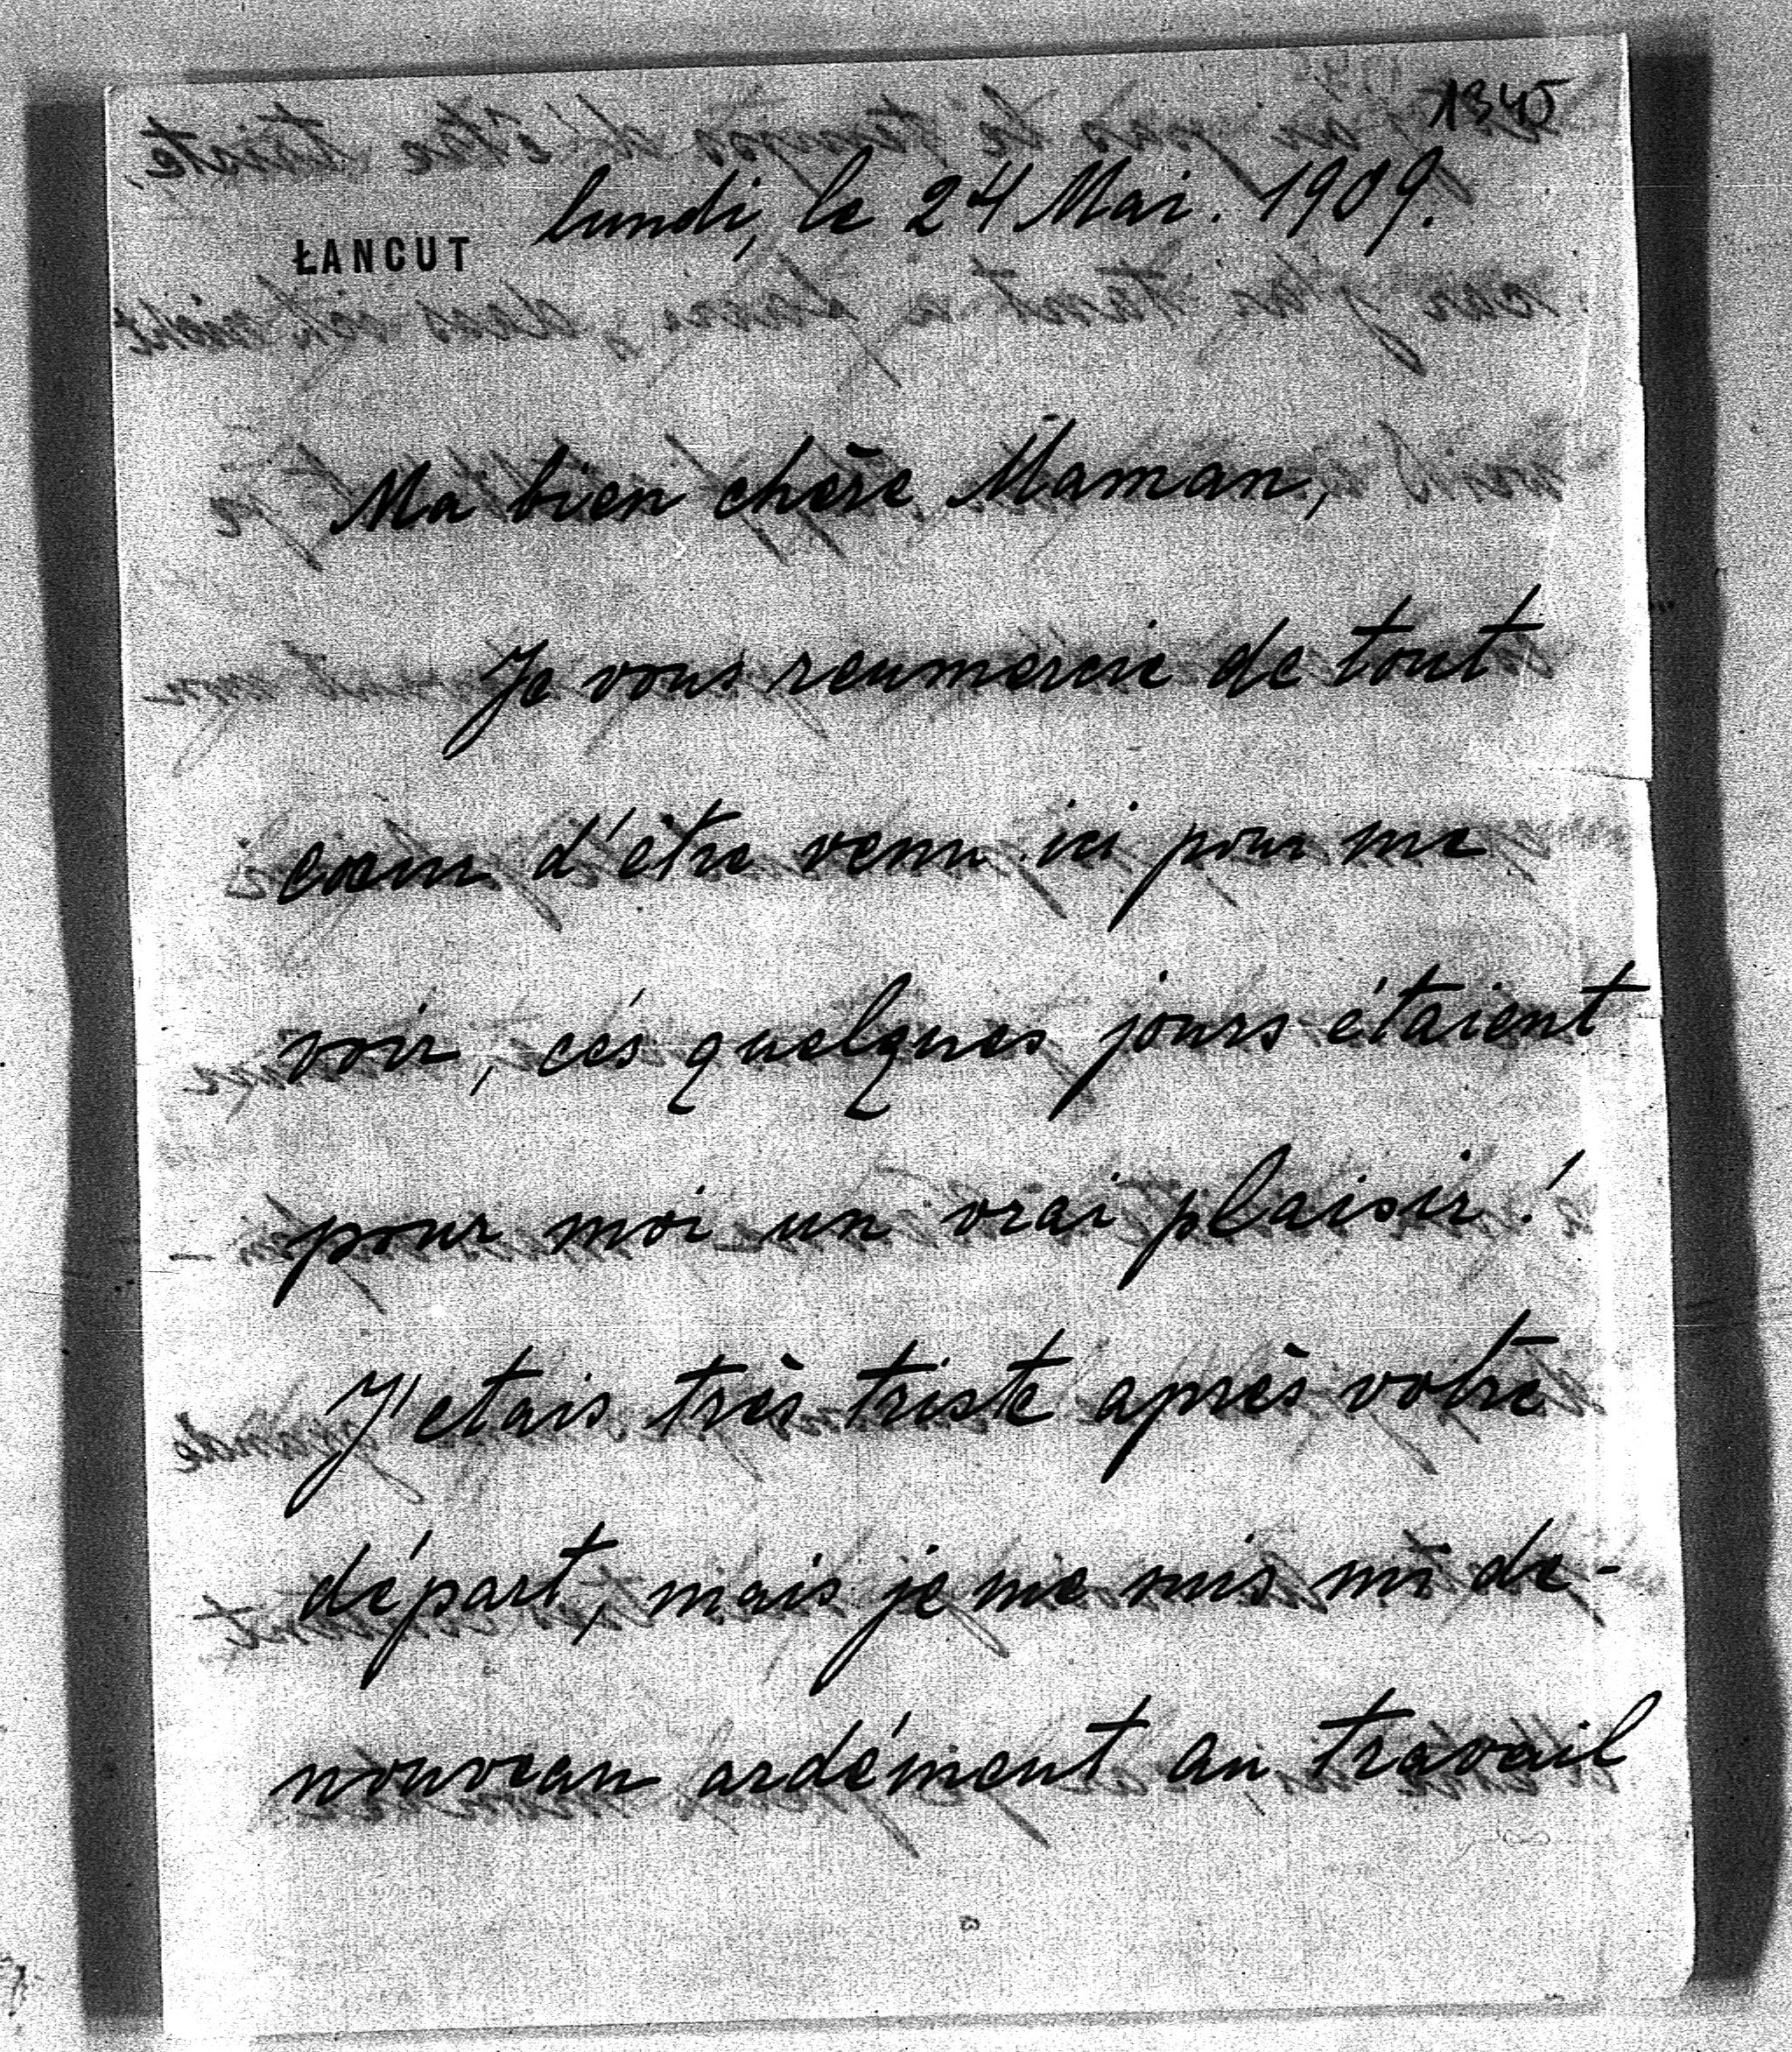 1345
lundi, le 24 Mai. 1909.
ŁANCUT
Ma bien chère Maman,
Je vous reumercie de tout
coeur d'être venu ici pour me
voir, ces quelques jours étaient
pour moi un vrai plaisir!
J'etais très triste après votre
départ, mais je me mis mi de-
nouveau ardément au travail